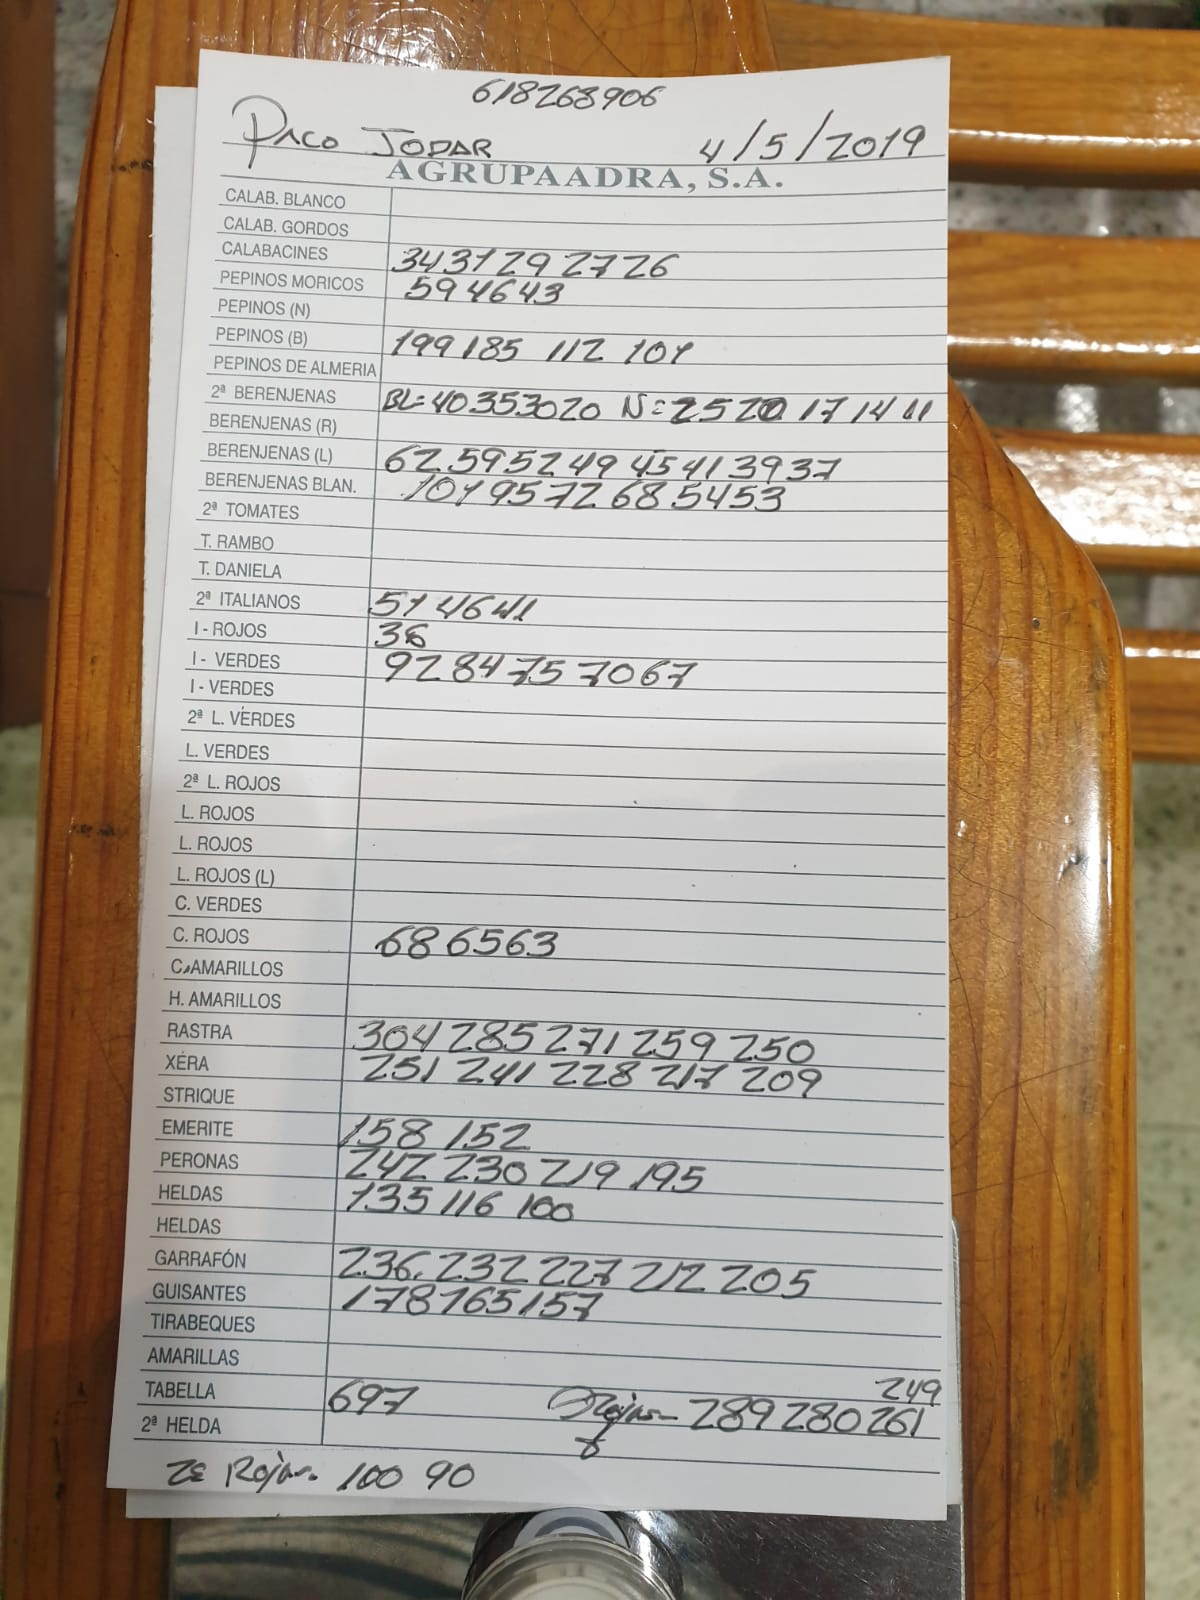 618268906
PACO JODAR 4/5/2019
AGRUPAADRA, S.A.
CALAB. BLANCO
CALAB. GORDOS
CALABACINES 34 31 29 27 26
PEPINOS MORICOS 59 46 43
PEPINOS (N)
PEPINOS (B) 199 185 112 101
PEPINOS DE ALMERIA
2ª BERENJENAS BL= 40 35 30 20 N= 25 20 17 14 11
BERENJENAS (R)
BERENJENAS (L) 62 59 52 49 45 41 39 37
BERENJENAS BLAN. 101 95 72 68 54 53
2ª TOMATES
T. RAMBO
T. DANIELA
2ª ITALIANOS 51 46 41
I - ROJOS 36
I - VERDES 92 84 75 70 67
I - VERDES
2ª L. VERDES
L. VERDES
2ª L. ROJOS
L. ROJOS
L. ROJOS
L. ROJOS (L)
C. VERDES
C. ROJOS 68 65 63
C. AMARILLOS
H. AMARILLOS
RASTRA 304 285 271 259 250
XÉRA 251 241 228 217 209
STRIQUE
EMERITE 158 152
PERONAS 242 230 219 195
HELDAS 135 116 100
HELDAS
GARRAFÓN 236 232 227 212 205
GUISANTES 178 165 157
TIRABEQUES
AMARILLAS
249
TABELLA 697 Rojas- 289 280 261
2ª HELDA
2ª Rojas. 100 90